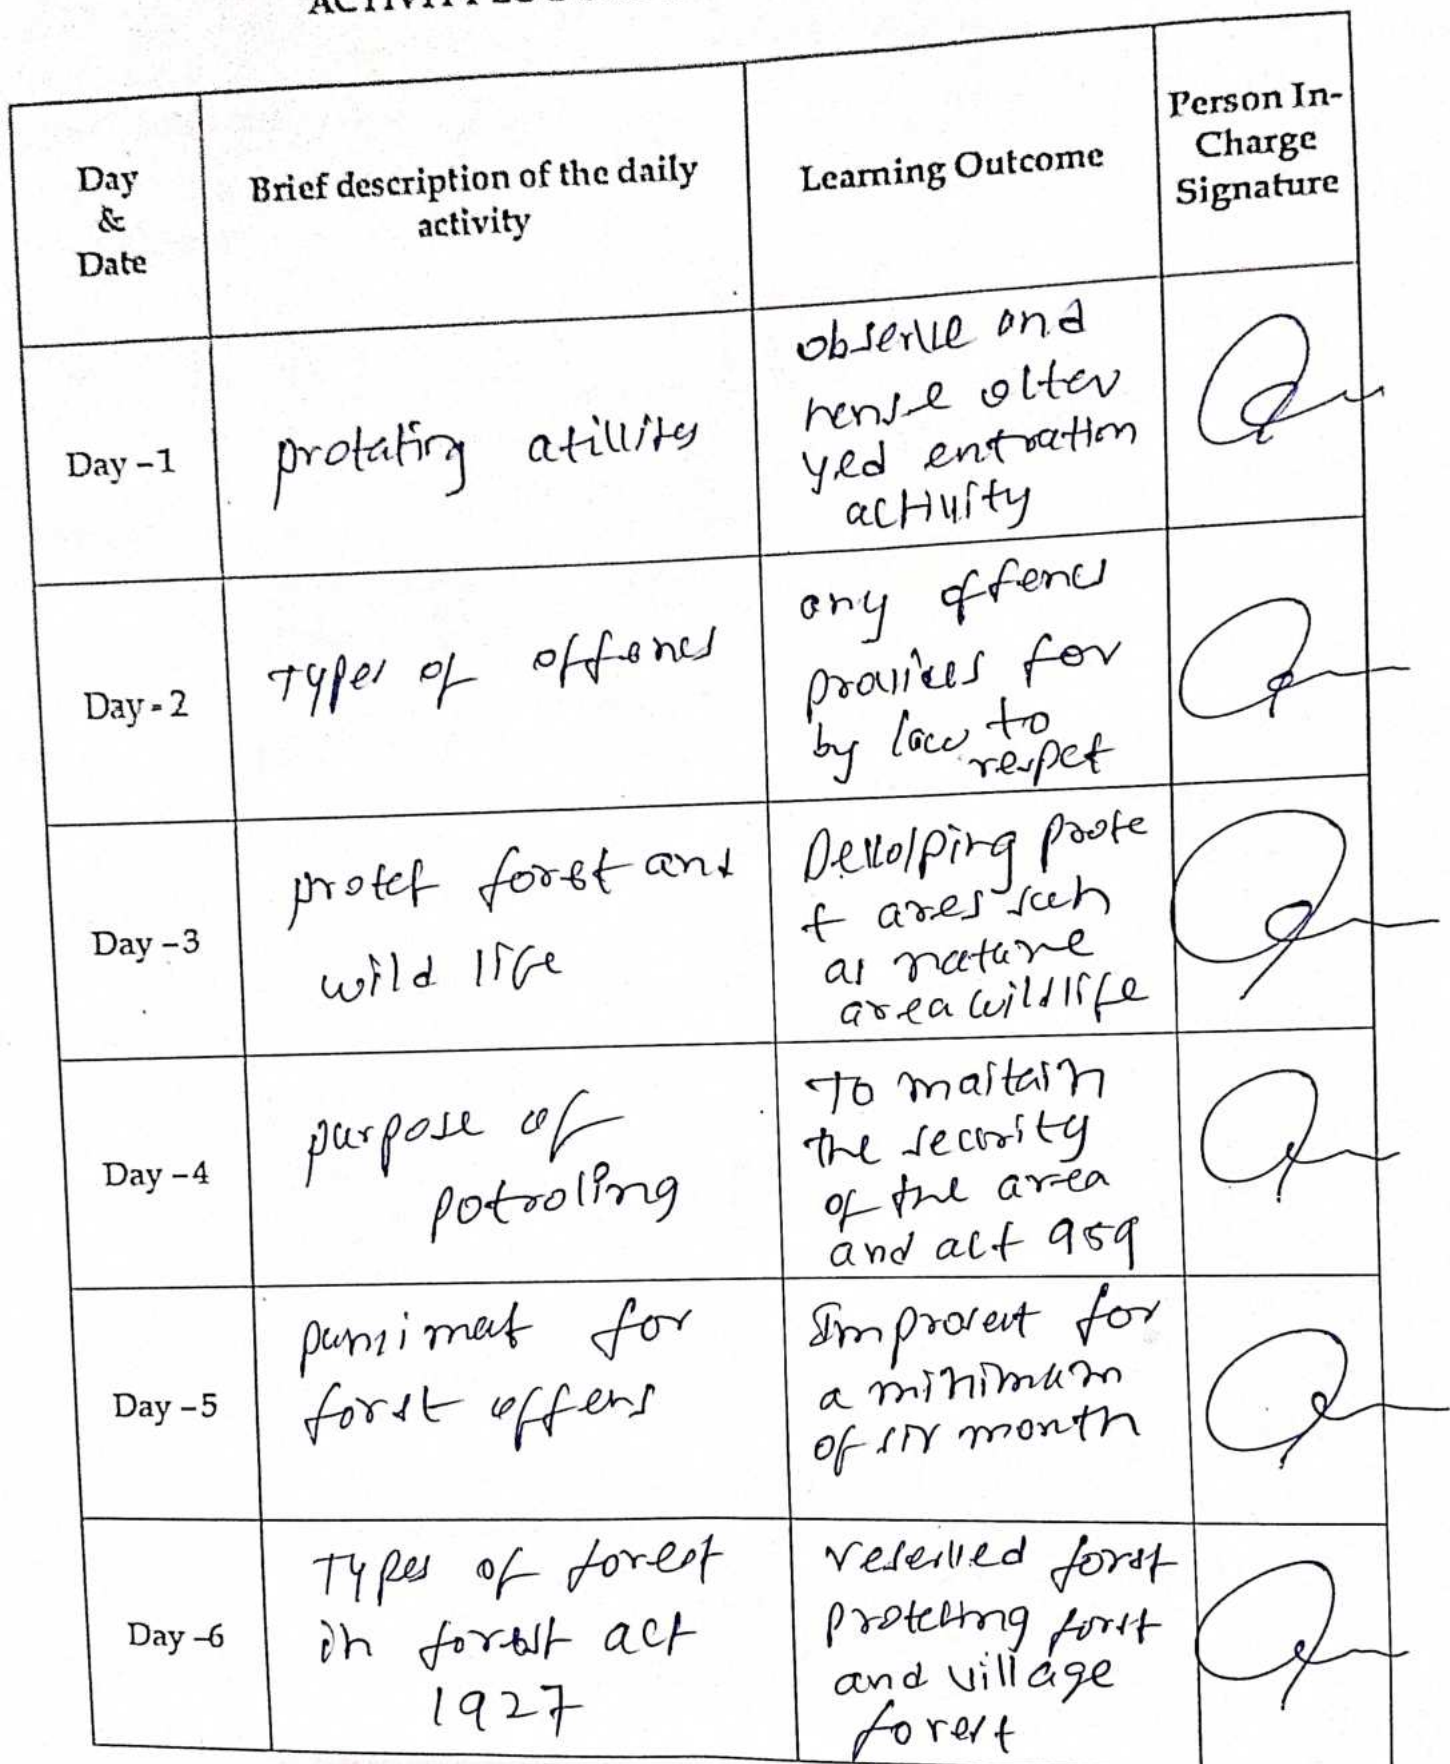 Day
&
Date
Brief description of the daily
activity
Learning Outcome
Person In-
Charge
Signature
Day -1
protating atillites
observe and
hense olter
yed entration
activity
Day - 2
Types of offencs
any offencs
provices for
by law to
respet
Day -3
protet forest and
wild life
Devlolping prote
t ares such
as nature
area wildlife
Day -4
purpose of
potroling
To maitain
the secority
of the area
and act 959
Day -5
punimat for
forst offens
a minimum
of six month
Day -6
Types of forest
in forest act
1927
reserved forst
protecting forst
and village
forest